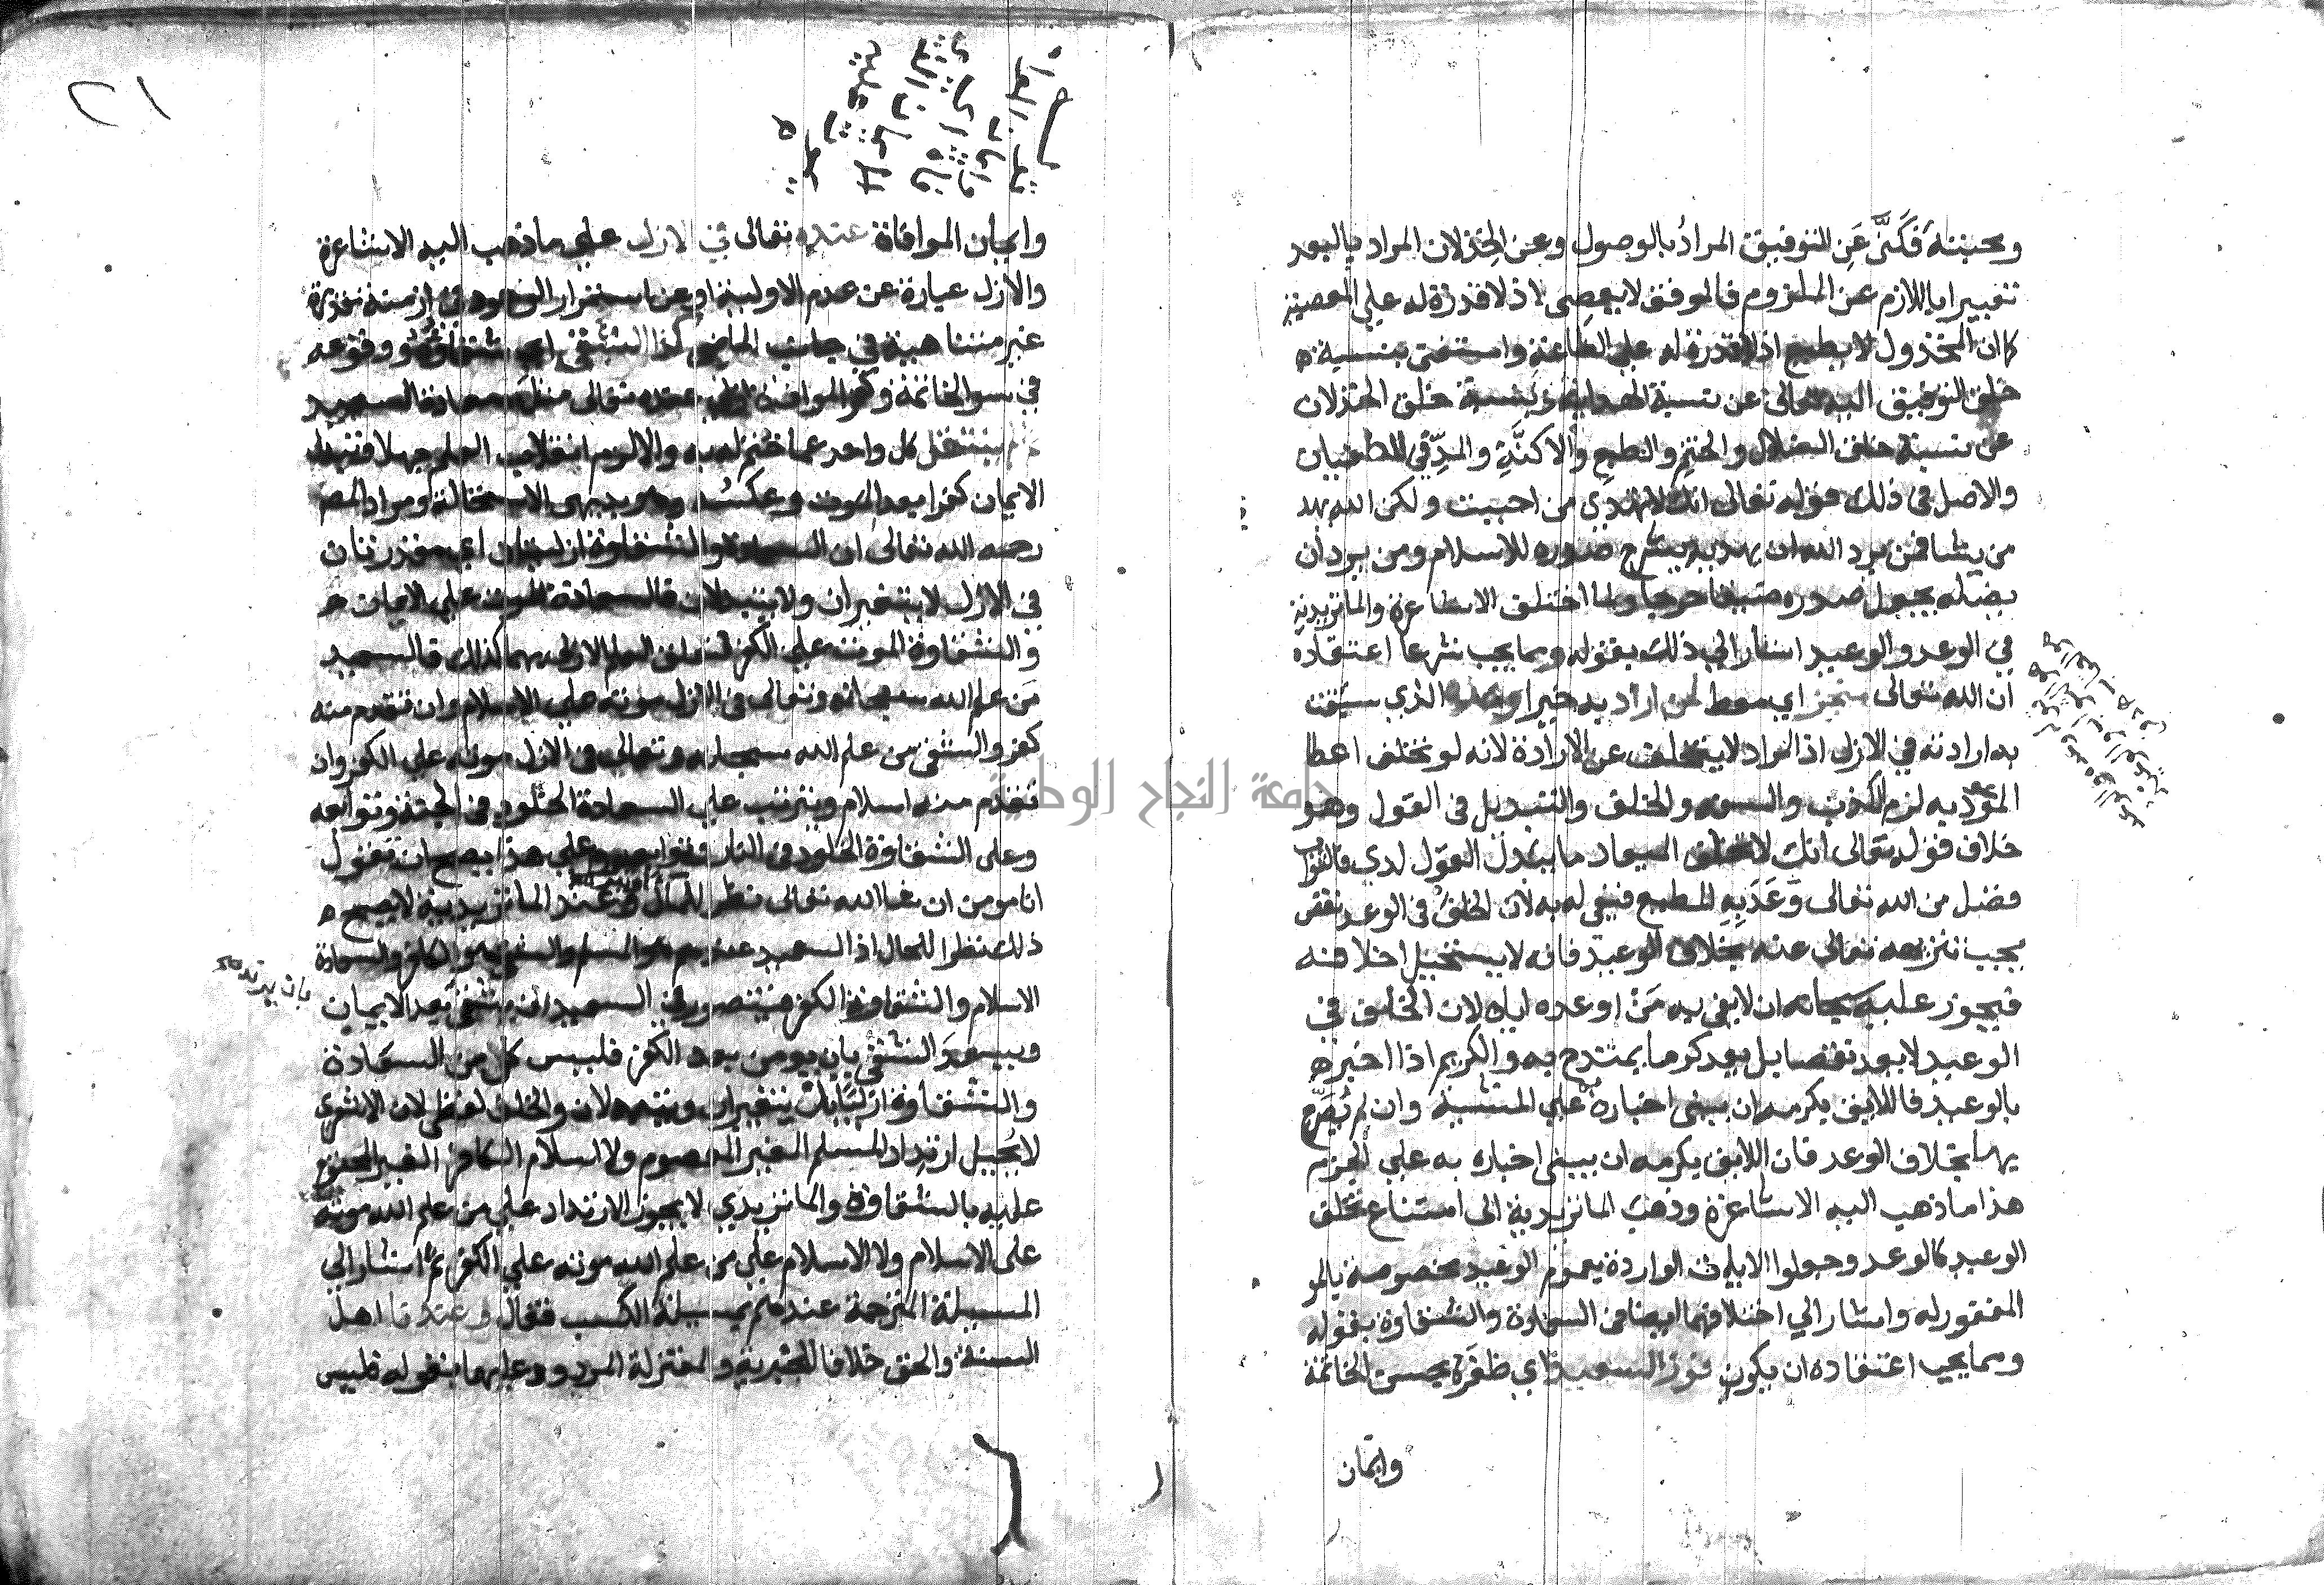 ومحبته فكنى عن التوفيق المراد بالوصول وعن الخذلان المراد بالبعد
تعبيرا باللازم عن الملزوم فالموفق لا يعصى اذ لا قدرة له على المعصية
كما ان المخذول لا يطيع اذ لا قدرة له على الطاعة واستغنى بنسبة
خلق التوفيق اليه تعالى عن نسبة الهداية وبنسبة خلق الخذلان
عن نسبة خلق الضلال والختم والطبع والاكنة والمد في الطغيان
والاصل في ذلك قوله تعالى انك لا تهدي من احببت ولكن الله يهد
من يشا فمن يرد الله ان يهديه يشرح صدره للاسلام ومن يرد ان
يضله يجعل صدره ضيقا حرجا ولما اختلف الاشاعرة والماتريدية
في الوعد والوعيد اشار الي ذلك بقوله ومما يجب شرعا اعتقاده
ان الله تعالى منجز اي معط لمن اراد به خيرا وعده الذي سبقت
به ارادته في الازل اذ المراد لا يتخلف عن الارادة لانه لو تخلف اعطا
الموعد به لزم الكذب والسفه والخلف والتبديل في القول وهو
خلاف قوله تعالى انك لا تخلف الميعاد ما يبدل القول لدي فالثواب
فضل من الله تعالى وعد به المطيع فيفي له به لان الخلف في الوعد نقص
يجب تنزيهه تعالى عنه بخلاف الوعيد فانه لا يستحيل اخلافه
فيجوز عليه سبحانه ان لا يفي به من اوعده اياه لان الخلف في
الوعيد لا يعد نقصا بل يعد كرما يمتدح به والكريم اذا اخبر
بالوعيد فاللايق بكرمه ان يبنى اخباره على المشيئة وان لم يصرح
بها بخلاف الوعد فان اللايق بكرمه ان يبنى اخباره به علي الجزم
هذا ما ذهب اليه الاشاعرة وذهب الماتريدية الى امتناع تخلف
الوعيد كالوعد وجعلوا الايات الواردة بعموم الوعيد مخصوصة بالمو
المغفور له واشار الي اختلافهما ايضا في السعادة والشقاوة بقوله
ومما يجب اعتقاده ان يكون فوز السعيد اي ظفره بحسن الخاتمة
وايمان
٢١
وايمان الموافاة عنده تعالى في الازل علي ما ذهب اليه الاشاعرة
والازل عبارة عن عدم الاولية او عن استمرار الوجود في ازمنة مقدرة
غير متناهية في جانب الماضي كذا الشقي اي شقاوته ووقوعه
في سو الخاتمة وكفر الموافاة عنده تعالى مثل سعادة السعيد
ثم لم ينتقل كل واحد عما ختم له به والا لزم انقلاب العلم جهلا وتبدل
الايمان كفرا بعد الموت وعكسه وهو بديهي الاستحالة ومراد المص
رحمه الله تعالى ان السعادة والشقاوة ازليتان اي مقدرتان
في الازل لا يتغيران ولا يتبدلان فالسعادة الموت علي الايمان
والشقاوة الموت علي الكفر لتعلق العلم الازلي بهما كذلك فالسعيد
من علم الله سبحانه وتعالى في الازل موته علي الاسلام وان تقدم منه
كفر والشقي من علم الله سبحانه وتعالى في الازل موته علي الكفر وان
تقدم منه اسلام ويترتب علي السعادة الخلود في الجنة وتوابعه
وعلى الشقاوة الخلود في النار وتوابعه وعلي هذا يصح ان تقول
انا مومن ان شا الله تعالى نظر للمآل وعند الماتريدية لا يصح
ذلك نظرا للحال اذ السعيد عندهم هو المسلم والشقي هو الكافر والسعادة
الاسلام والشقاوة الكفر فيتصور في السعيد ان يشقى بعد الايمان
بان يرتد
ويسعد الشقي بان يومن بعد الكفر فليس كل من السعادة
والشقاوة ازليا بل يتغيران ويتبدلان والخلف لفظي لان الاشعري
لا يحيل ارتداد المسلم الغير المعصوم ولا اسلام الكافر الغير المحتوم
عليه بالشقاوة والماتريدي لا يجوز الارتداد علي من علم الله موته
على الاسلام ولا الاسلام علي من علم الله موته علي الكفر ثم اشار الي
المسيلة المترجمة عندهم بمسيلة الكسب فقال وعندنا اهل
السنة والحق خلافا للجبرية والمعتزلة المردود عليهما بقوله فليس
جامعة النجاح الوطنية